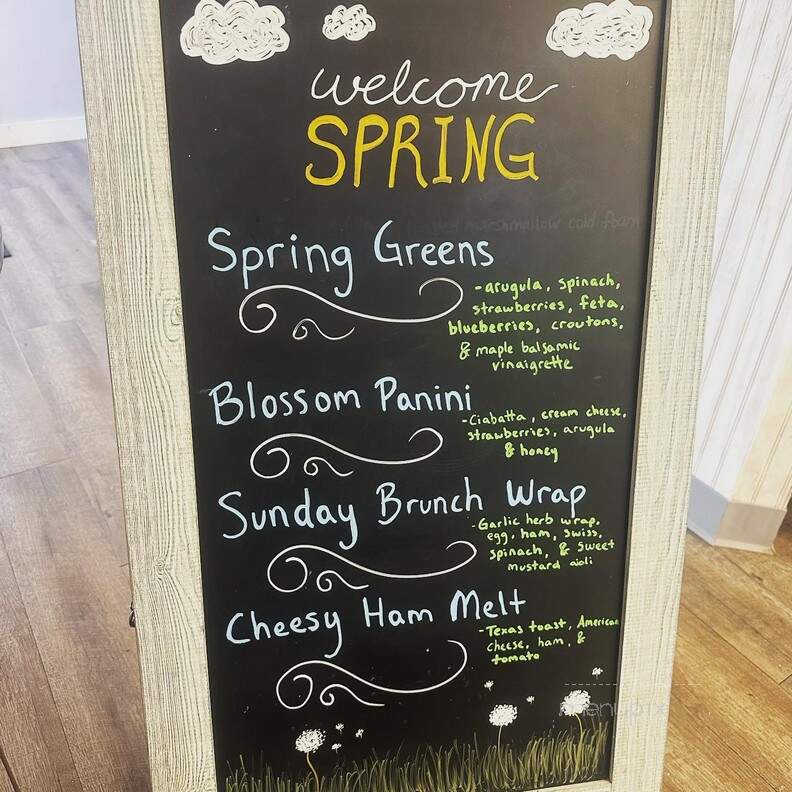 welcome
SPRING
marshmallow cold foam
Spring Greens
-arugula, spinach,
strawberries, feta,
blueberries, croutons,
& maple balsamic
vinaigrette
Blossom Panini
-Ciabatta, cream cheese,
strawberries, arugula
& honey
Sunday Brunch Wrap
-Garlic herb wrap,
egg, ham, swiss,
spinach, & sweet
mustard aioli
Cheesy Ham Melt
-Texas toast, American
cheese, ham, &
tomato
menupix